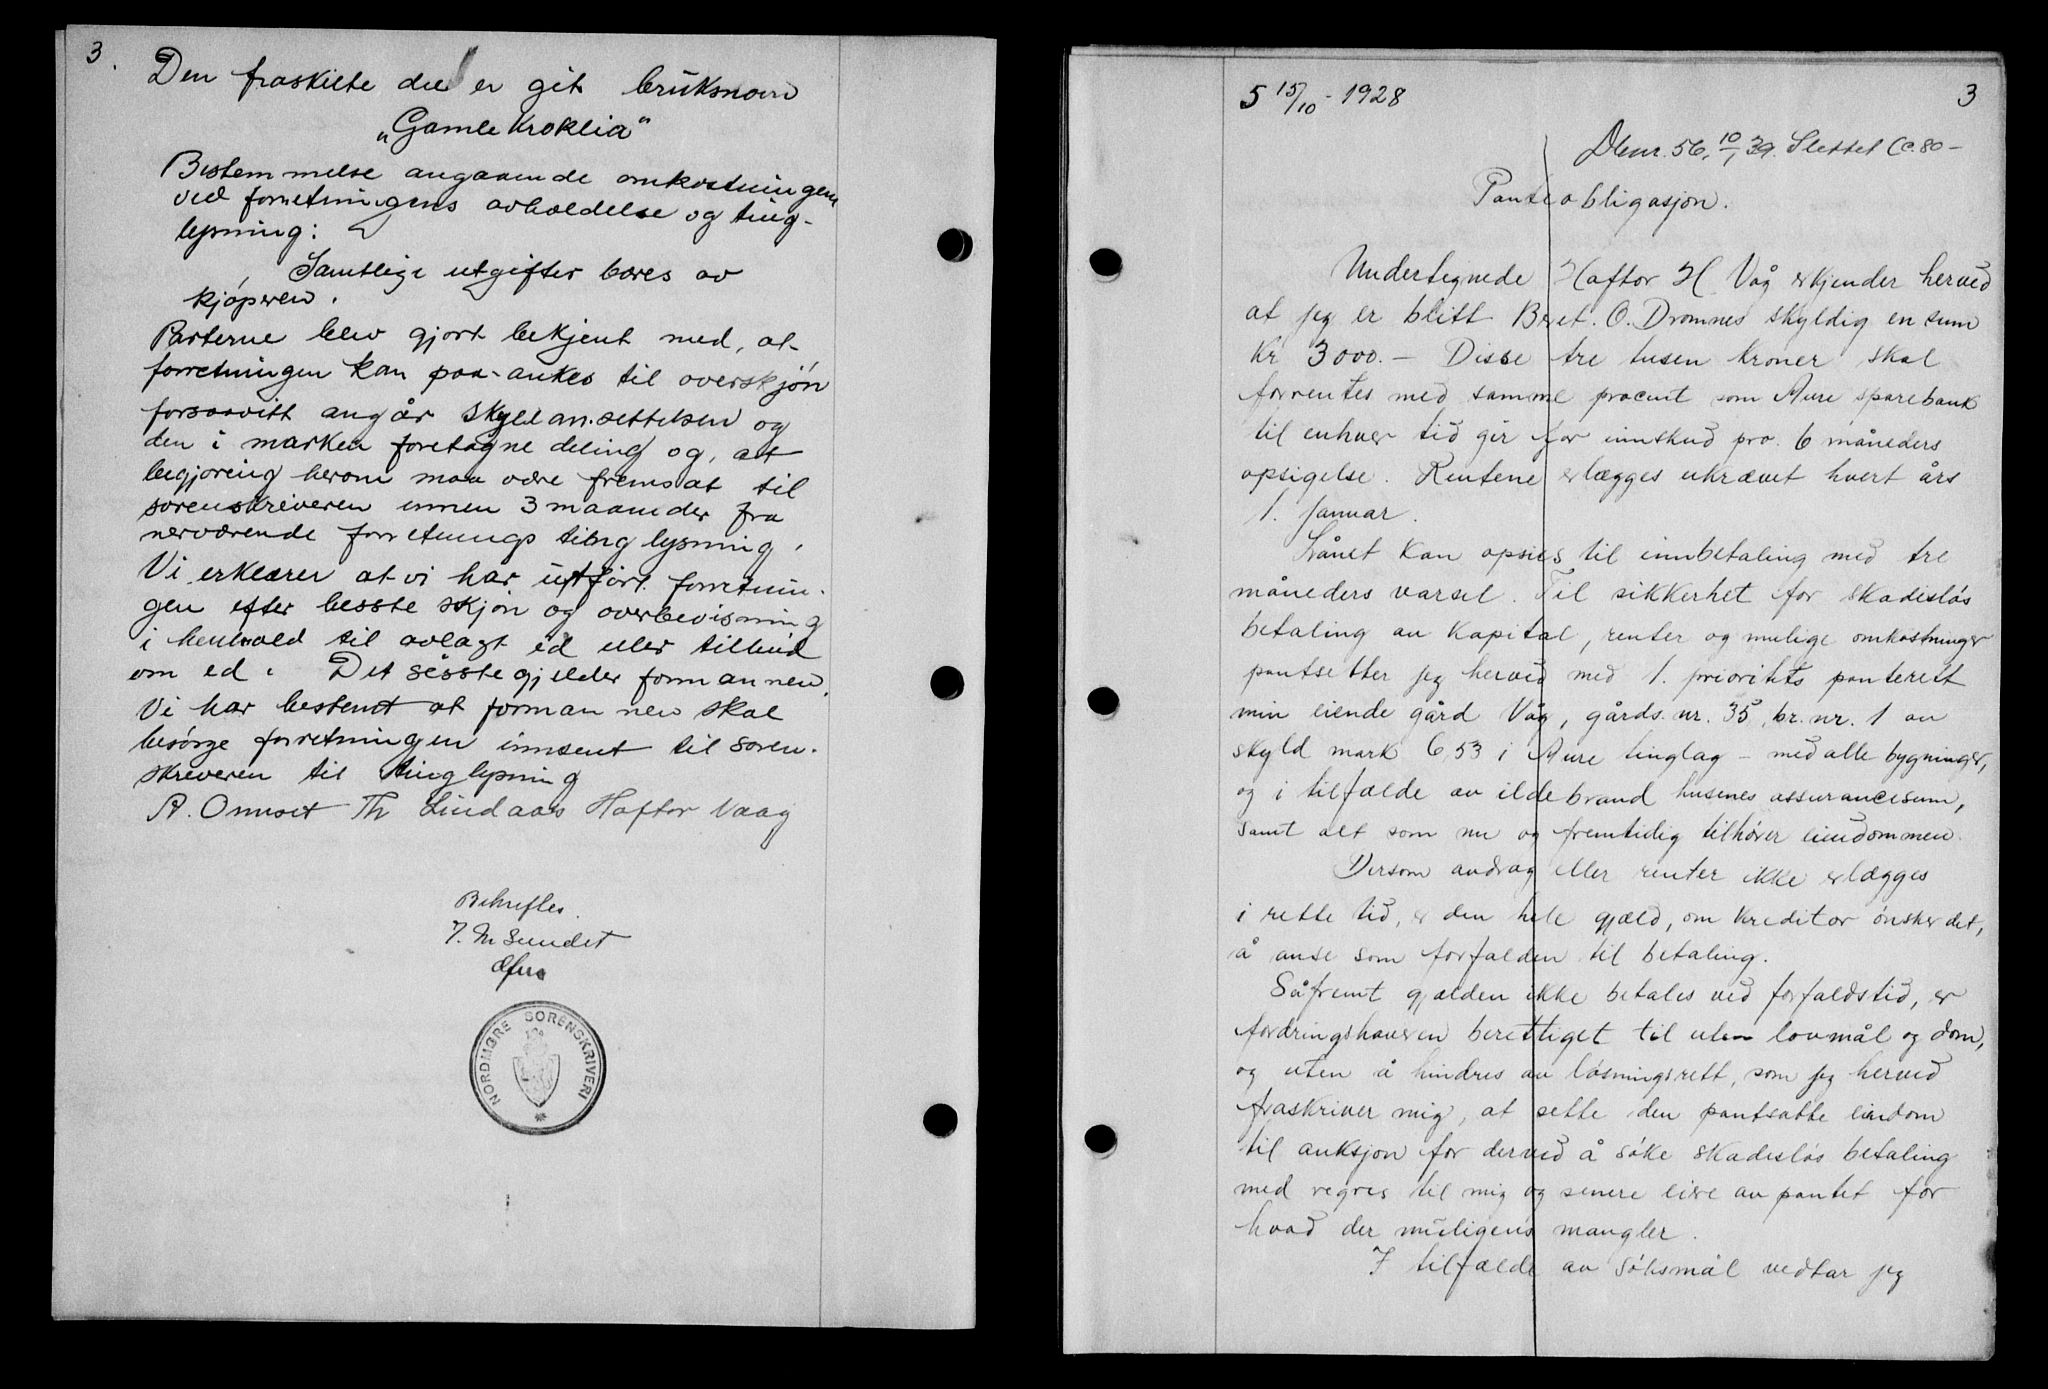 3.
Den fraskilte del er git bruksnavn
„Gamle Kroklia"
Bestemmelse angaaende omkostningen
ved forretningens avholdelse og ting-
lysning:
Samtlige utgifter bæres av
kjøperen.
Parterne blev gjort bekjent med, at
forretningen kan paa-ankes til overskjøn
forsaavitt angår skyldan.settelsen og
den i marken foretagne deling og, at
begjæring herom maa være fremsat til
sorenskriveren innen 3 maaneder fra
nerværende forretnings tinglysning.
Vi erklærer at vi har utført forretnin-
gen efter beste skjøn og overbevisning
i henhold til avlagt ed eller tilbud
om ed. Det sisste gjelder formannen.
Vi har bestemt at formannen skal
besørge forretningen innsent til soren-
skriveren til tinglysning
A. Omset Th Lindaas Haftor Vaag
Bekreftes.
J. M Sundet
NORDMØRE SORENSKRIVERI
5 15/10 - 1928
3
Dbnr. 56, 10/1 39. Slettet
Panteobligasjon.
Undertegnede Haftor H Våg erkjender herved
at jeg er blitt Beret. O. Dromnes skyldig en sum
kr 3000.- Disse tre tusen kroner skal
forrentes med samme procent som Aure sparebank
til enhver tid gir for innskud pro. 6 måneders
opsigelse. Rentene erlægges ukrævet hvert års
1. januar.
Lånet kan opsies til innbetaling med tre
måneders varsel. Til sikkerhet for skadesløs
betaling av kapital, renter og mulige omkostninger
pantsetter jeg herved med 1. prioritets panterett
min eiende gård Våg, gårds.nr. 35, br.nr. 1 av
skyld mark 6,53 i Aure tinglag - med alle bygninger,
og i tilfælde av ildebrand husenes assurancesum,
samt alt som nu og fremtidig tilhører eiendommen.
Dersom avdrag eller renter ikke erlægges
i rette tid, er den hele gjæld, om kreditor ønsker det,
å anse som forfalden til betaling.
Såfremt gjælden ikke betales ved forfaldstid, er
fordringshaveren berettiget til uten lovmål og dom,
og uten å hindres av løsningsrett, som jeg herved
fraskriver mig, at sette den pantsatte eiendom
til auksjon for derved å søke skadesløs betaling
med regres til mig og senere eiere av pantet for
hvad der muligens mangler.
I tilfælde av søksmål vedtar jeg